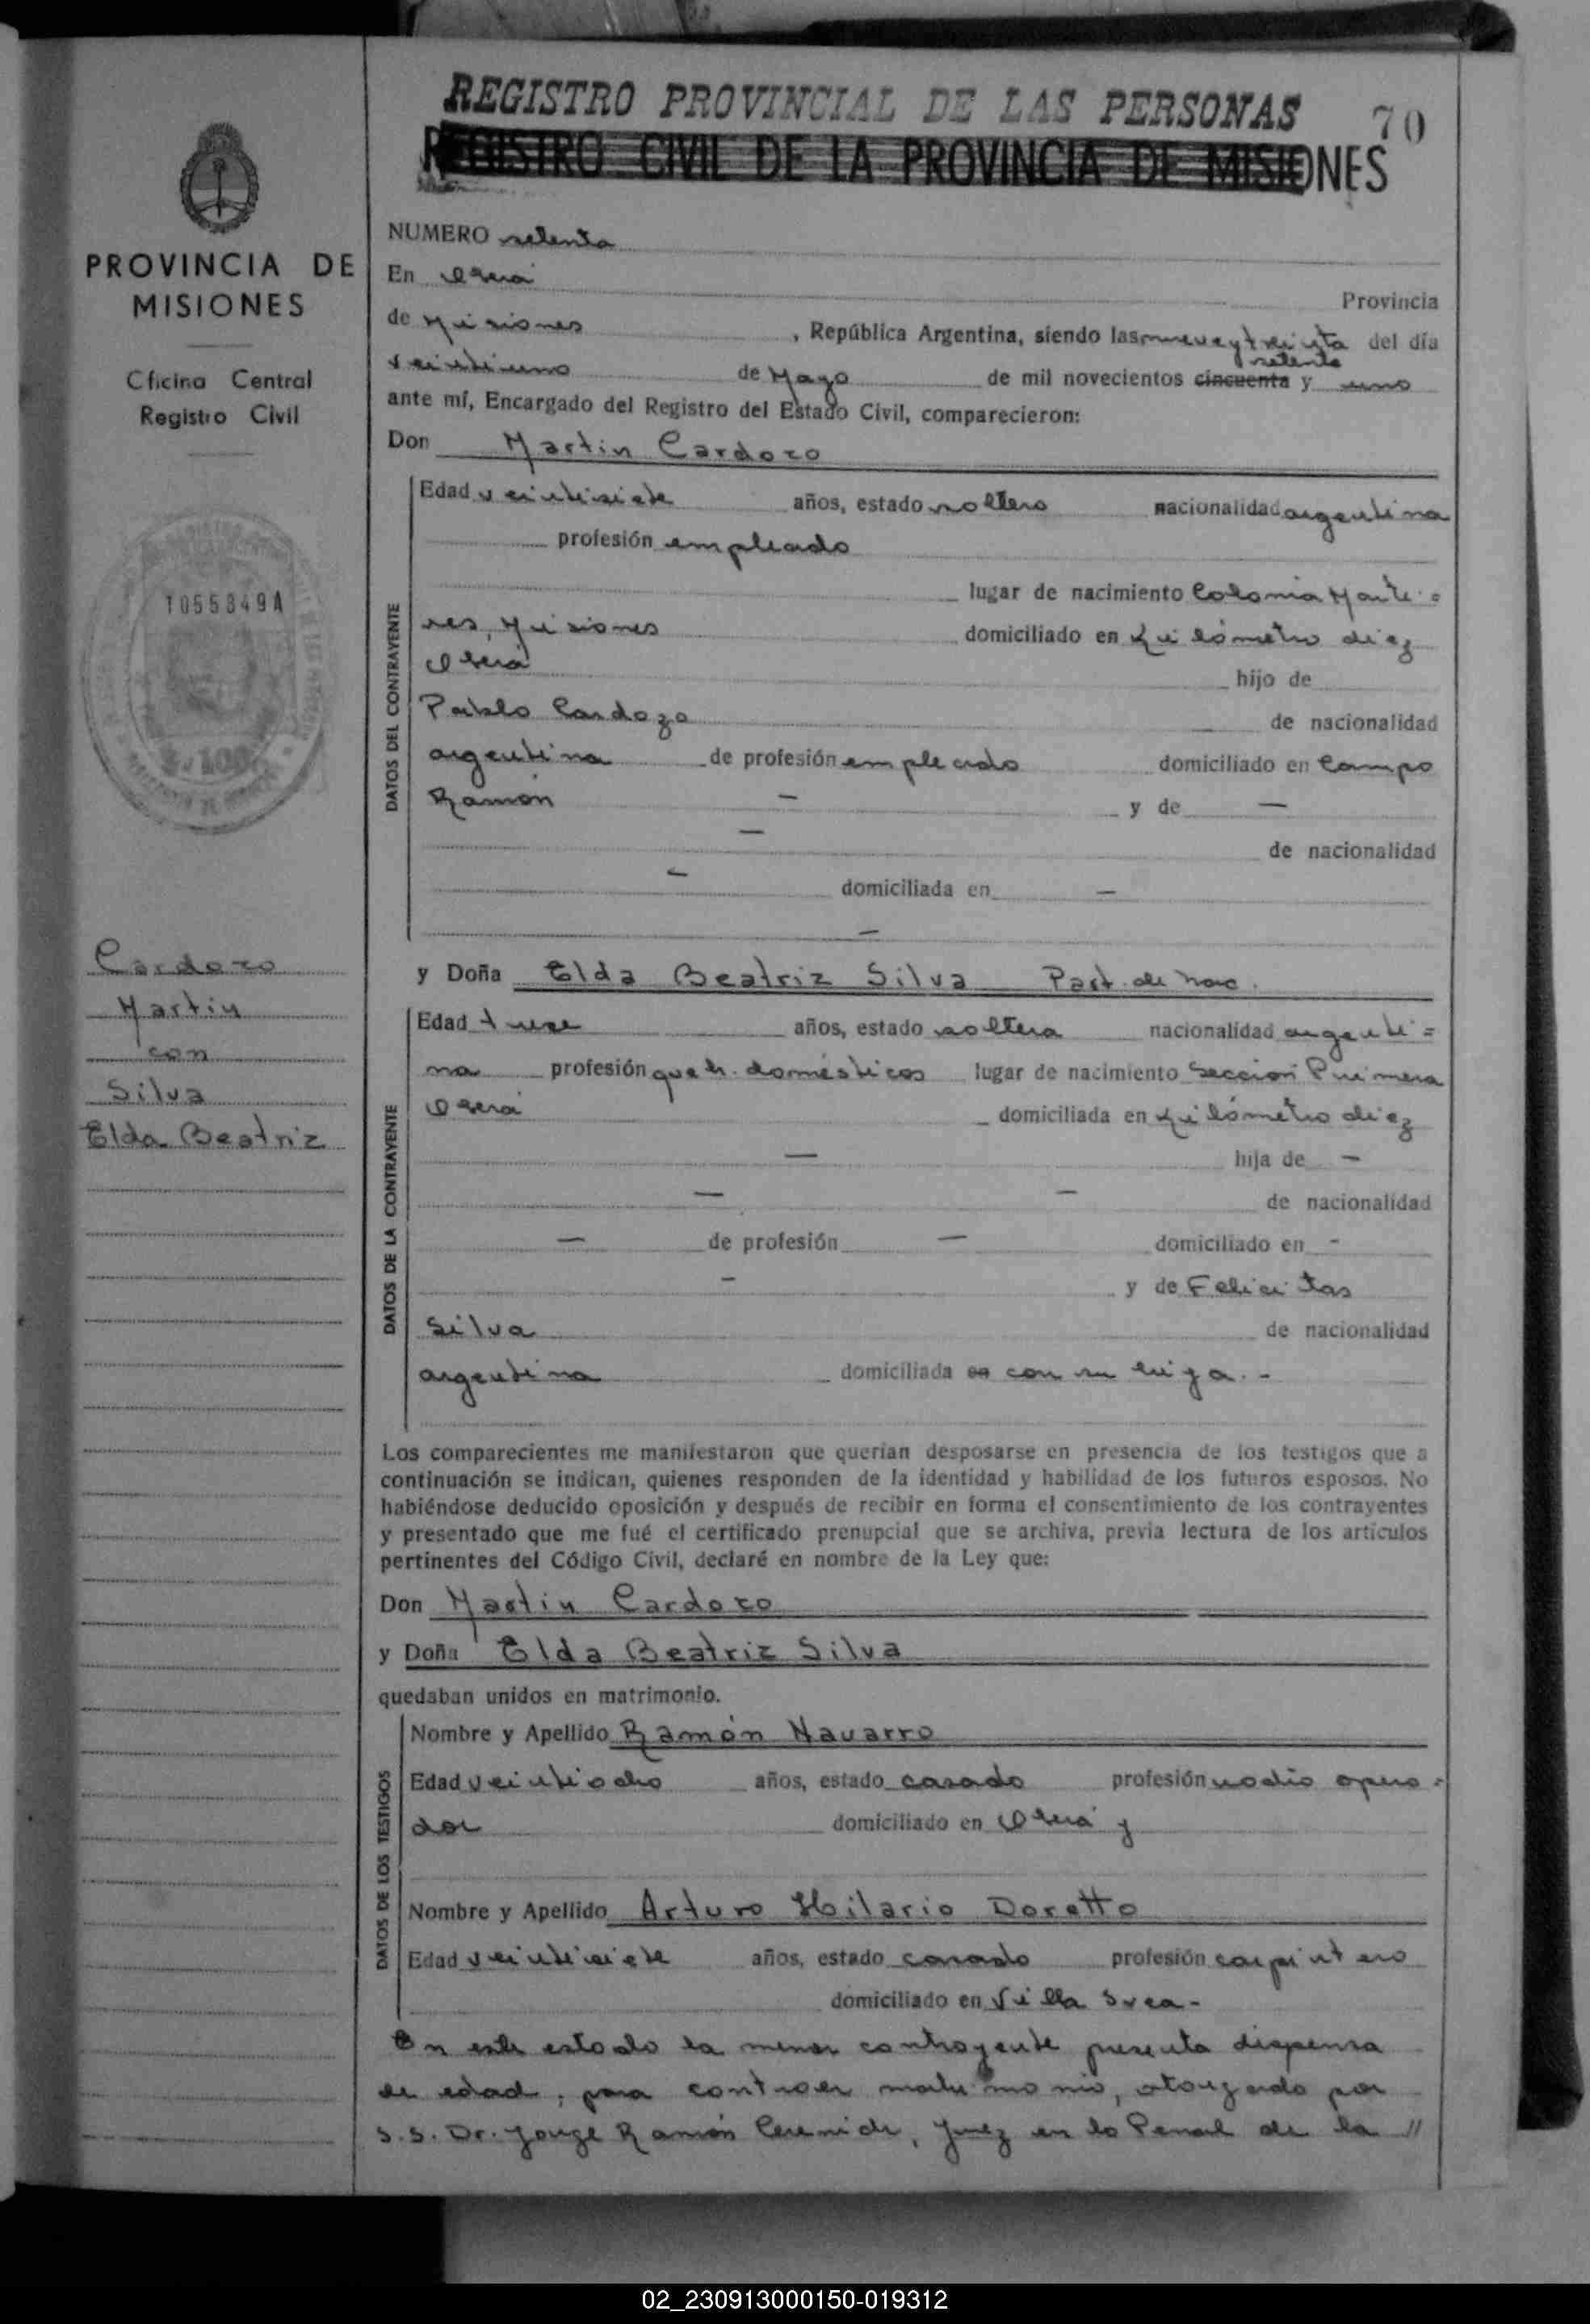 REGISTRO PROVINCIAL DE LAS PERSONAS
70
REGISTRO CIVIL DE LA PROVINCIA DE MISIONES
PROVINCIA DE
MISIONES
Oficina Central
Registro Civil
1055849A
$ 100
Cardozo
Martin
con
Silva
Elda Beatriz
NUMERO setenta
En Oberá
Provincia
de Misiones, República Argentina, siendo las nueve y treinta del día
setenta
veintiuno de Mayo de mil novecientos cincuenta y uno
ante mí, Encargado del Registro del Estado Civil, comparecieron:
Don Martin Cardozo
DATOS DEL CONTRAYENTE
Edad veintisiete años, estado soltero nacionalidad argentina
profesión empleado
lugar de nacimiento Colonia Marti=
res, Misiones domiciliado en Kilómetro diez
Oberá hijo de
Pablo Cardozo de nacionalidad
argentina de profesión empleado domiciliado en Campo
Ramón — y de —
— de nacionalidad
— domiciliada en —
—
y Doña Elda Beatriz Silva Part. de nac.
DATOS DE LA CONTRAYENTE
Edad trece años, estado soltera nacionalidad argenti=
na profesión queh. domésticos lugar de nacimiento Sección Primera
Oberá domiciliada en Kilómetro diez
— hija de —
— — de nacionalidad
— de profesión — domiciliado en -
— y de Felicitas
Silva de nacionalidad
argentina domiciliada en con su hija.-
Los comparecientes me manifestaron que querían desposarse en presencia de los testigos que a
continuación se indican, quienes responden de la identidad y habilidad de los futuros esposos. No
habiéndose deducido oposición y después de recibir en forma el consentimiento de los contrayentes
y presentado que me fué el certificado prenupcial que se archiva, previa lectura de los artículos
pertinentes del Código Civil, declaré en nombre de la Ley que:
Don Martin Cardozo
y Doña Elda Beatriz Silva
quedaban unidos en matrimonio.
DATOS DE LOS TESTIGOS
Nombre y Apellido Ramón Navarro
Edad veintiocho años, estado casado profesión radio opera=
dor domiciliado en Oberá y
Nombre y Apellido Arturo Hilario Doretto
Edad veintisiete años, estado casado profesión carpintero
domiciliado en Villa Svea-
En este estado la menor contrayente presenta dispensa
de edad, para contraer matrimonio, otorgado por
S.S. Dr. Jorge Ramón, Juez en lo Penal de la //
02_230913000150-019312